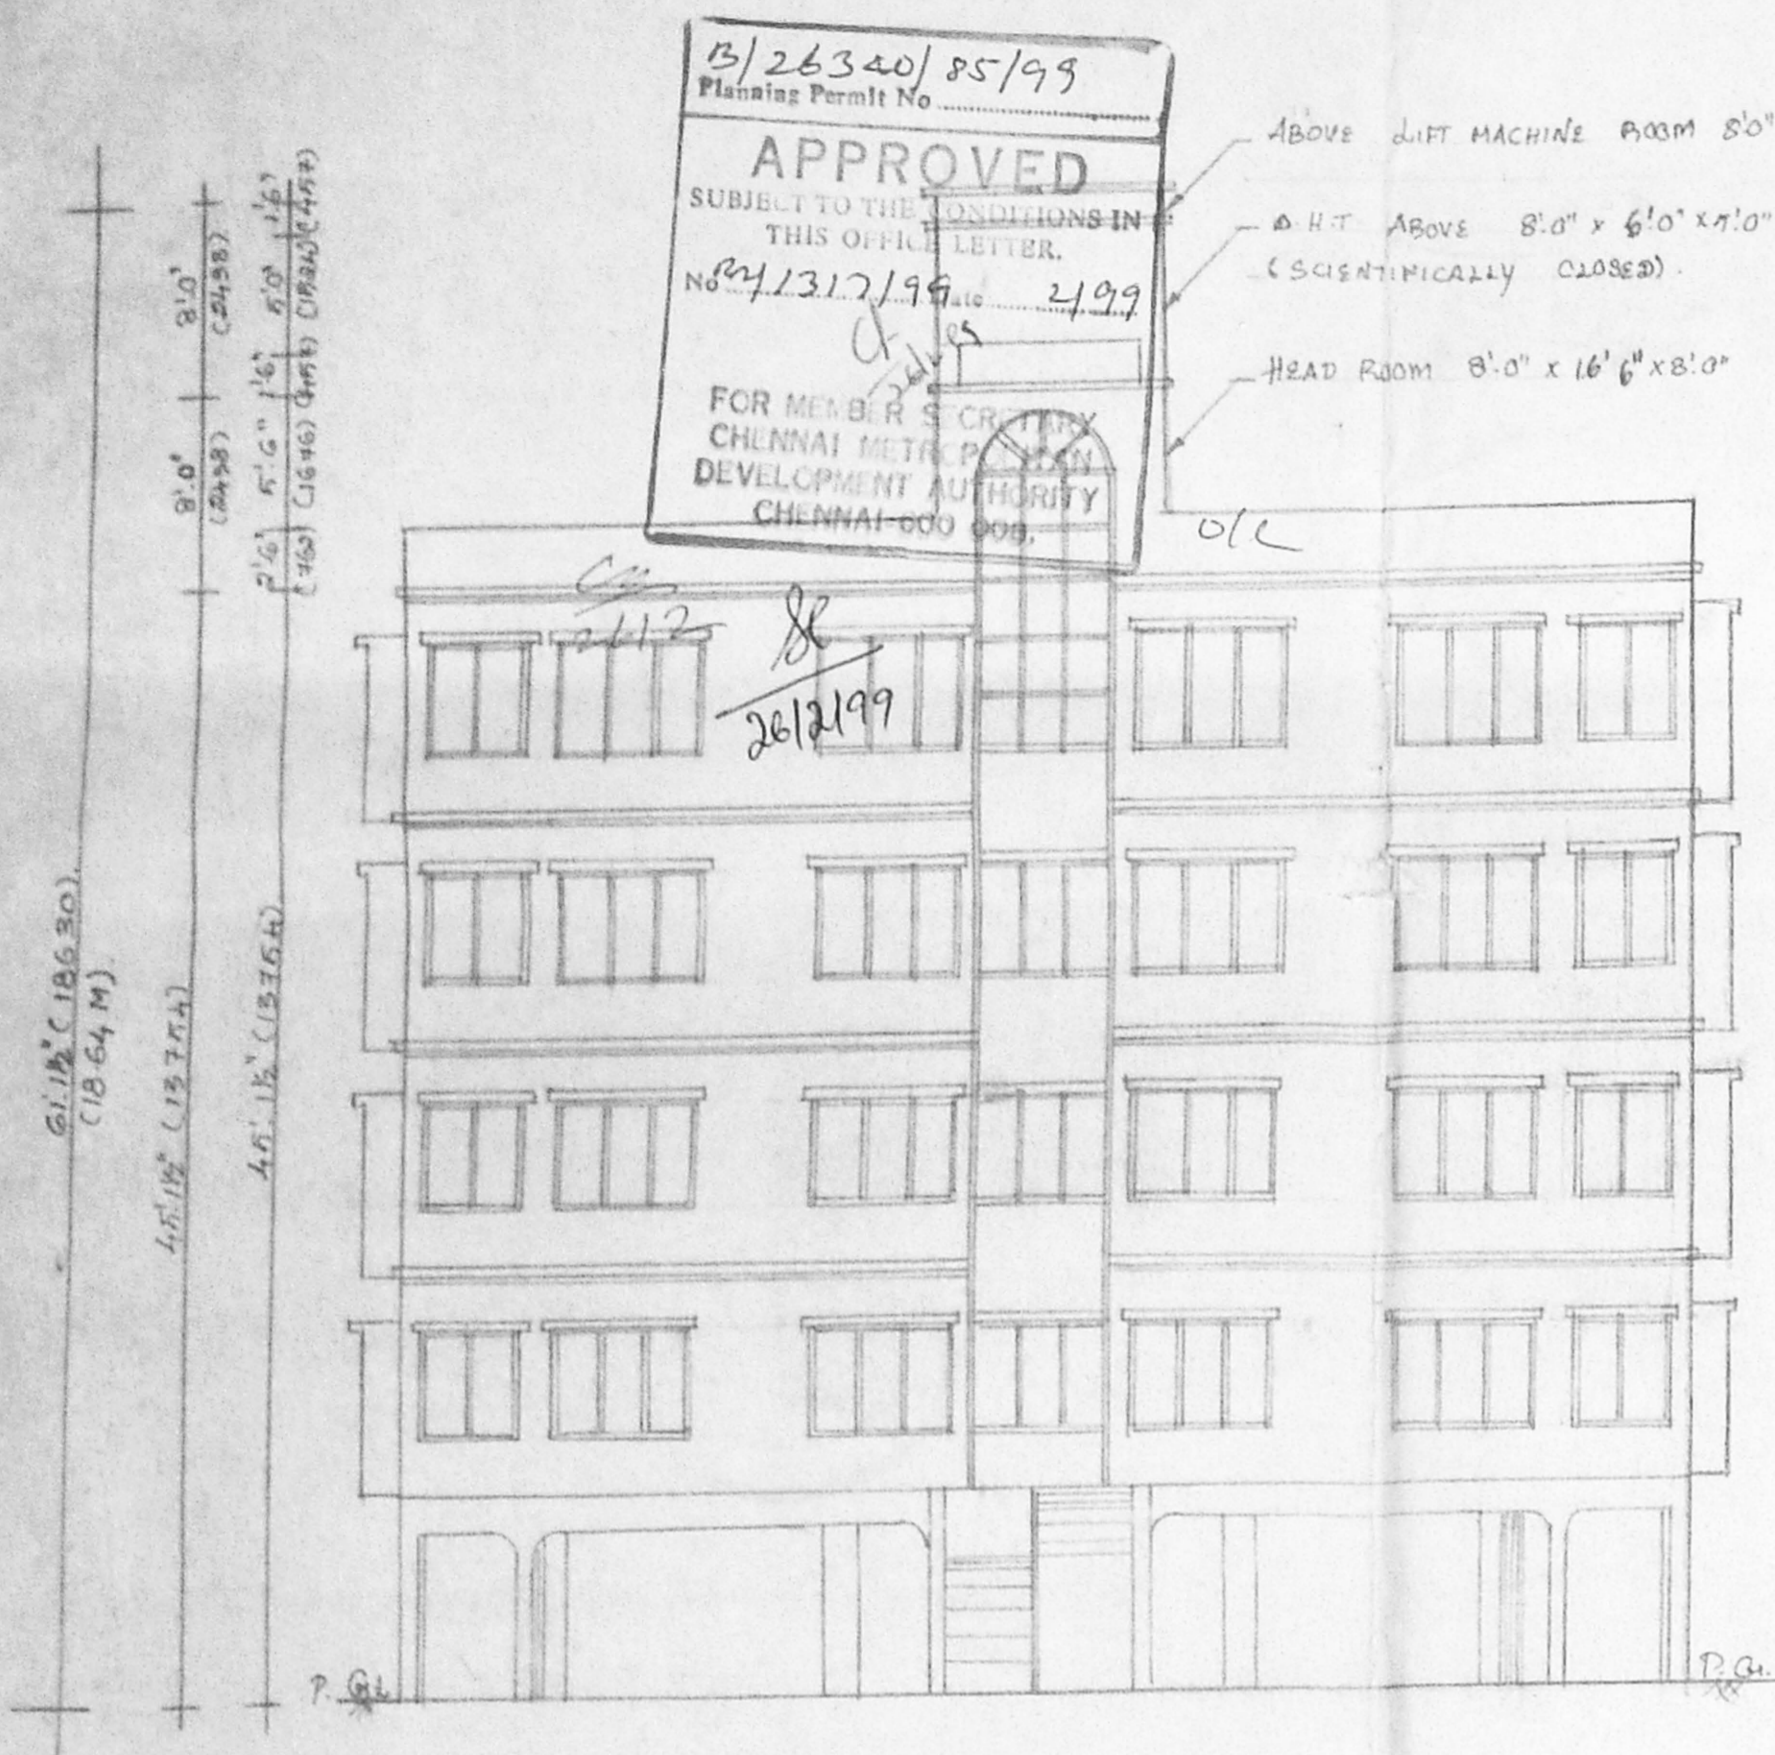 B/26340/85/99
Planning Permit No
APPROVED
SUBJECT TO THE CONDITIONS IN
THIS OFFICE LETTER.
No 1317/99 Date 2/99
FOR MEMBER SECRETARY
CHENNAI METROPOLITAN
DEVELOPMENT AUTHORITY
CHENNAI-600 008.
ABOVE LIFT MACHINE ROOM 8'0"
O.H.T ABOVE 8'.0" x 6'.0" x 5'.0"
(SCIENTIFICALLY CLOSED).
HEAD ROOM 8'.0" x 16'6" x 8'.0"
26/2/99
61'.1½" (18630).
(18.64 M)
45'.1½" (13754)
8'.0"
(2438)
8'.0"
(2438)
45'.1½" (13754)
2'.6" 5'.6" 1'6" 5'0" 1'6"
(762) (1676) (457) (1524) (457)
P.
P.